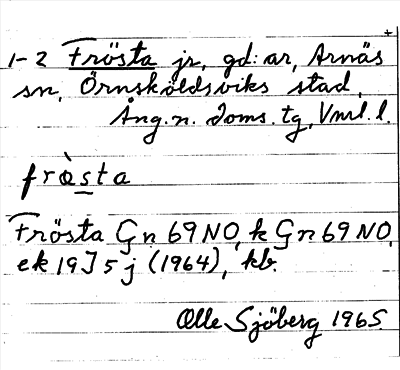 1-2 Frösta jr, gd:ar, Arnäs
sn, Örnsköldsviks stad,
Ång.n. doms.tg, Vnrl. l.
fròsta
Frösta Gn 69 NO, k Gn 69 NO,
ek 19J5j (1964), kb.
Olle Sjöberg 1965